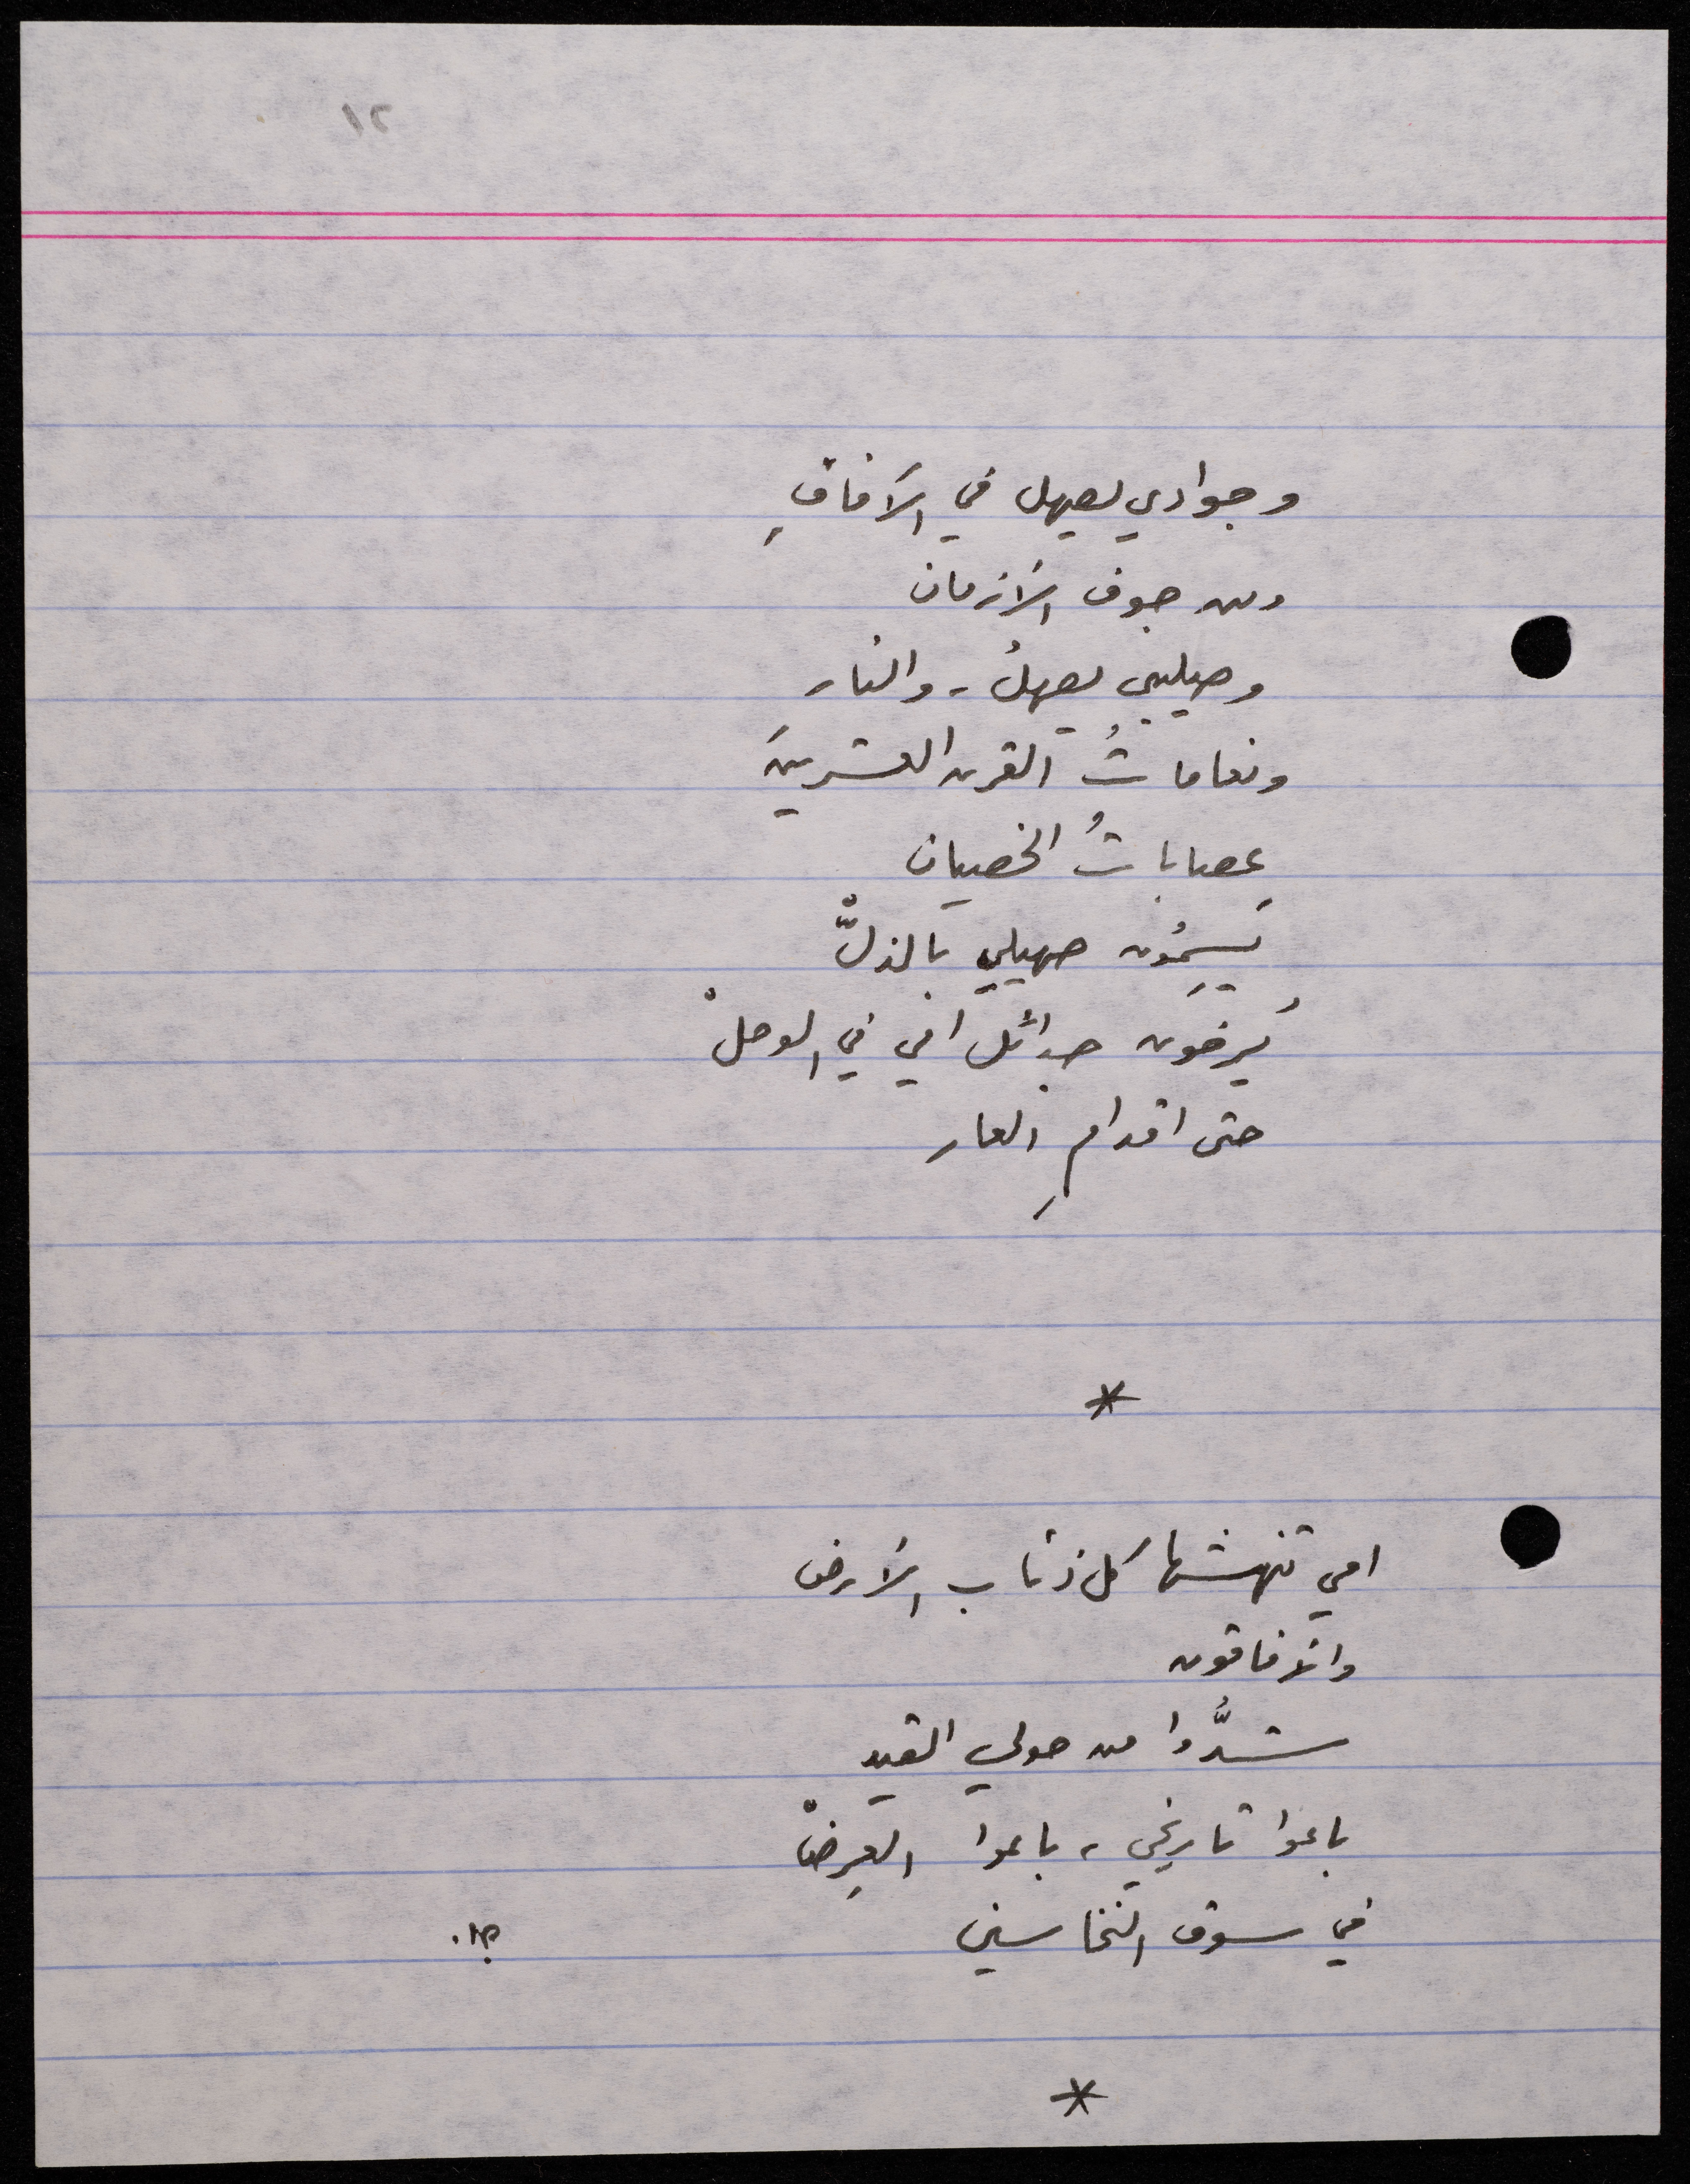 ٢١
وجوادي يصهل في الآفاقِ
ومن جوف الأزمان
وصليبي يصهلُ، والنار
ونعاماتُ القرن العشرينَ
عِصاباتُ الخصيان
يَسِمُون صهيلي بالذلّْ
يُرخون جدائل امي في الوحلْ
حتى اقدامِ العار
*
امي تنهشها كل ذئاب الأرض
والأفاقون
شدُّوا من حولي القيد
باعوا تاريخي، باعوا العِرضْ
في سوق النخاسين
*